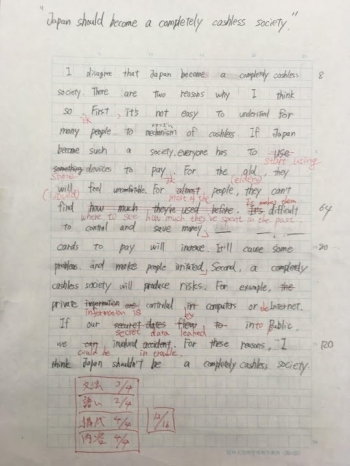 "Japan should become a completely cashless society."
I disagree that Japan become a completely cashless 8
society. There are two reasons why I think
so. First, it's not easy to understand for
many people to mechanism of cashless. If Japan
become such a society, everyone has to use
start using
something devices to pay. For the old, they
some
will feel uncomfortable. For almost people, they can't
find how much they're used before. It's difficult 64
where to see how much they've spent in the past
to control and save money
cards to pay will increase. It'll cause some
problem and makes people irritated. Second, a completely
cashless society will produce risks. For example, the
private information are controled in computers or Internet.
information is
the
If our secret dates to into public,
secret data leaked
we can involved accident. For these reasons, I 120
could be in trouble
think Japan shouldn't be a completely cashless society.
文法 2/4
語い 2/4
構成 4/4
内容 4/4
12/16